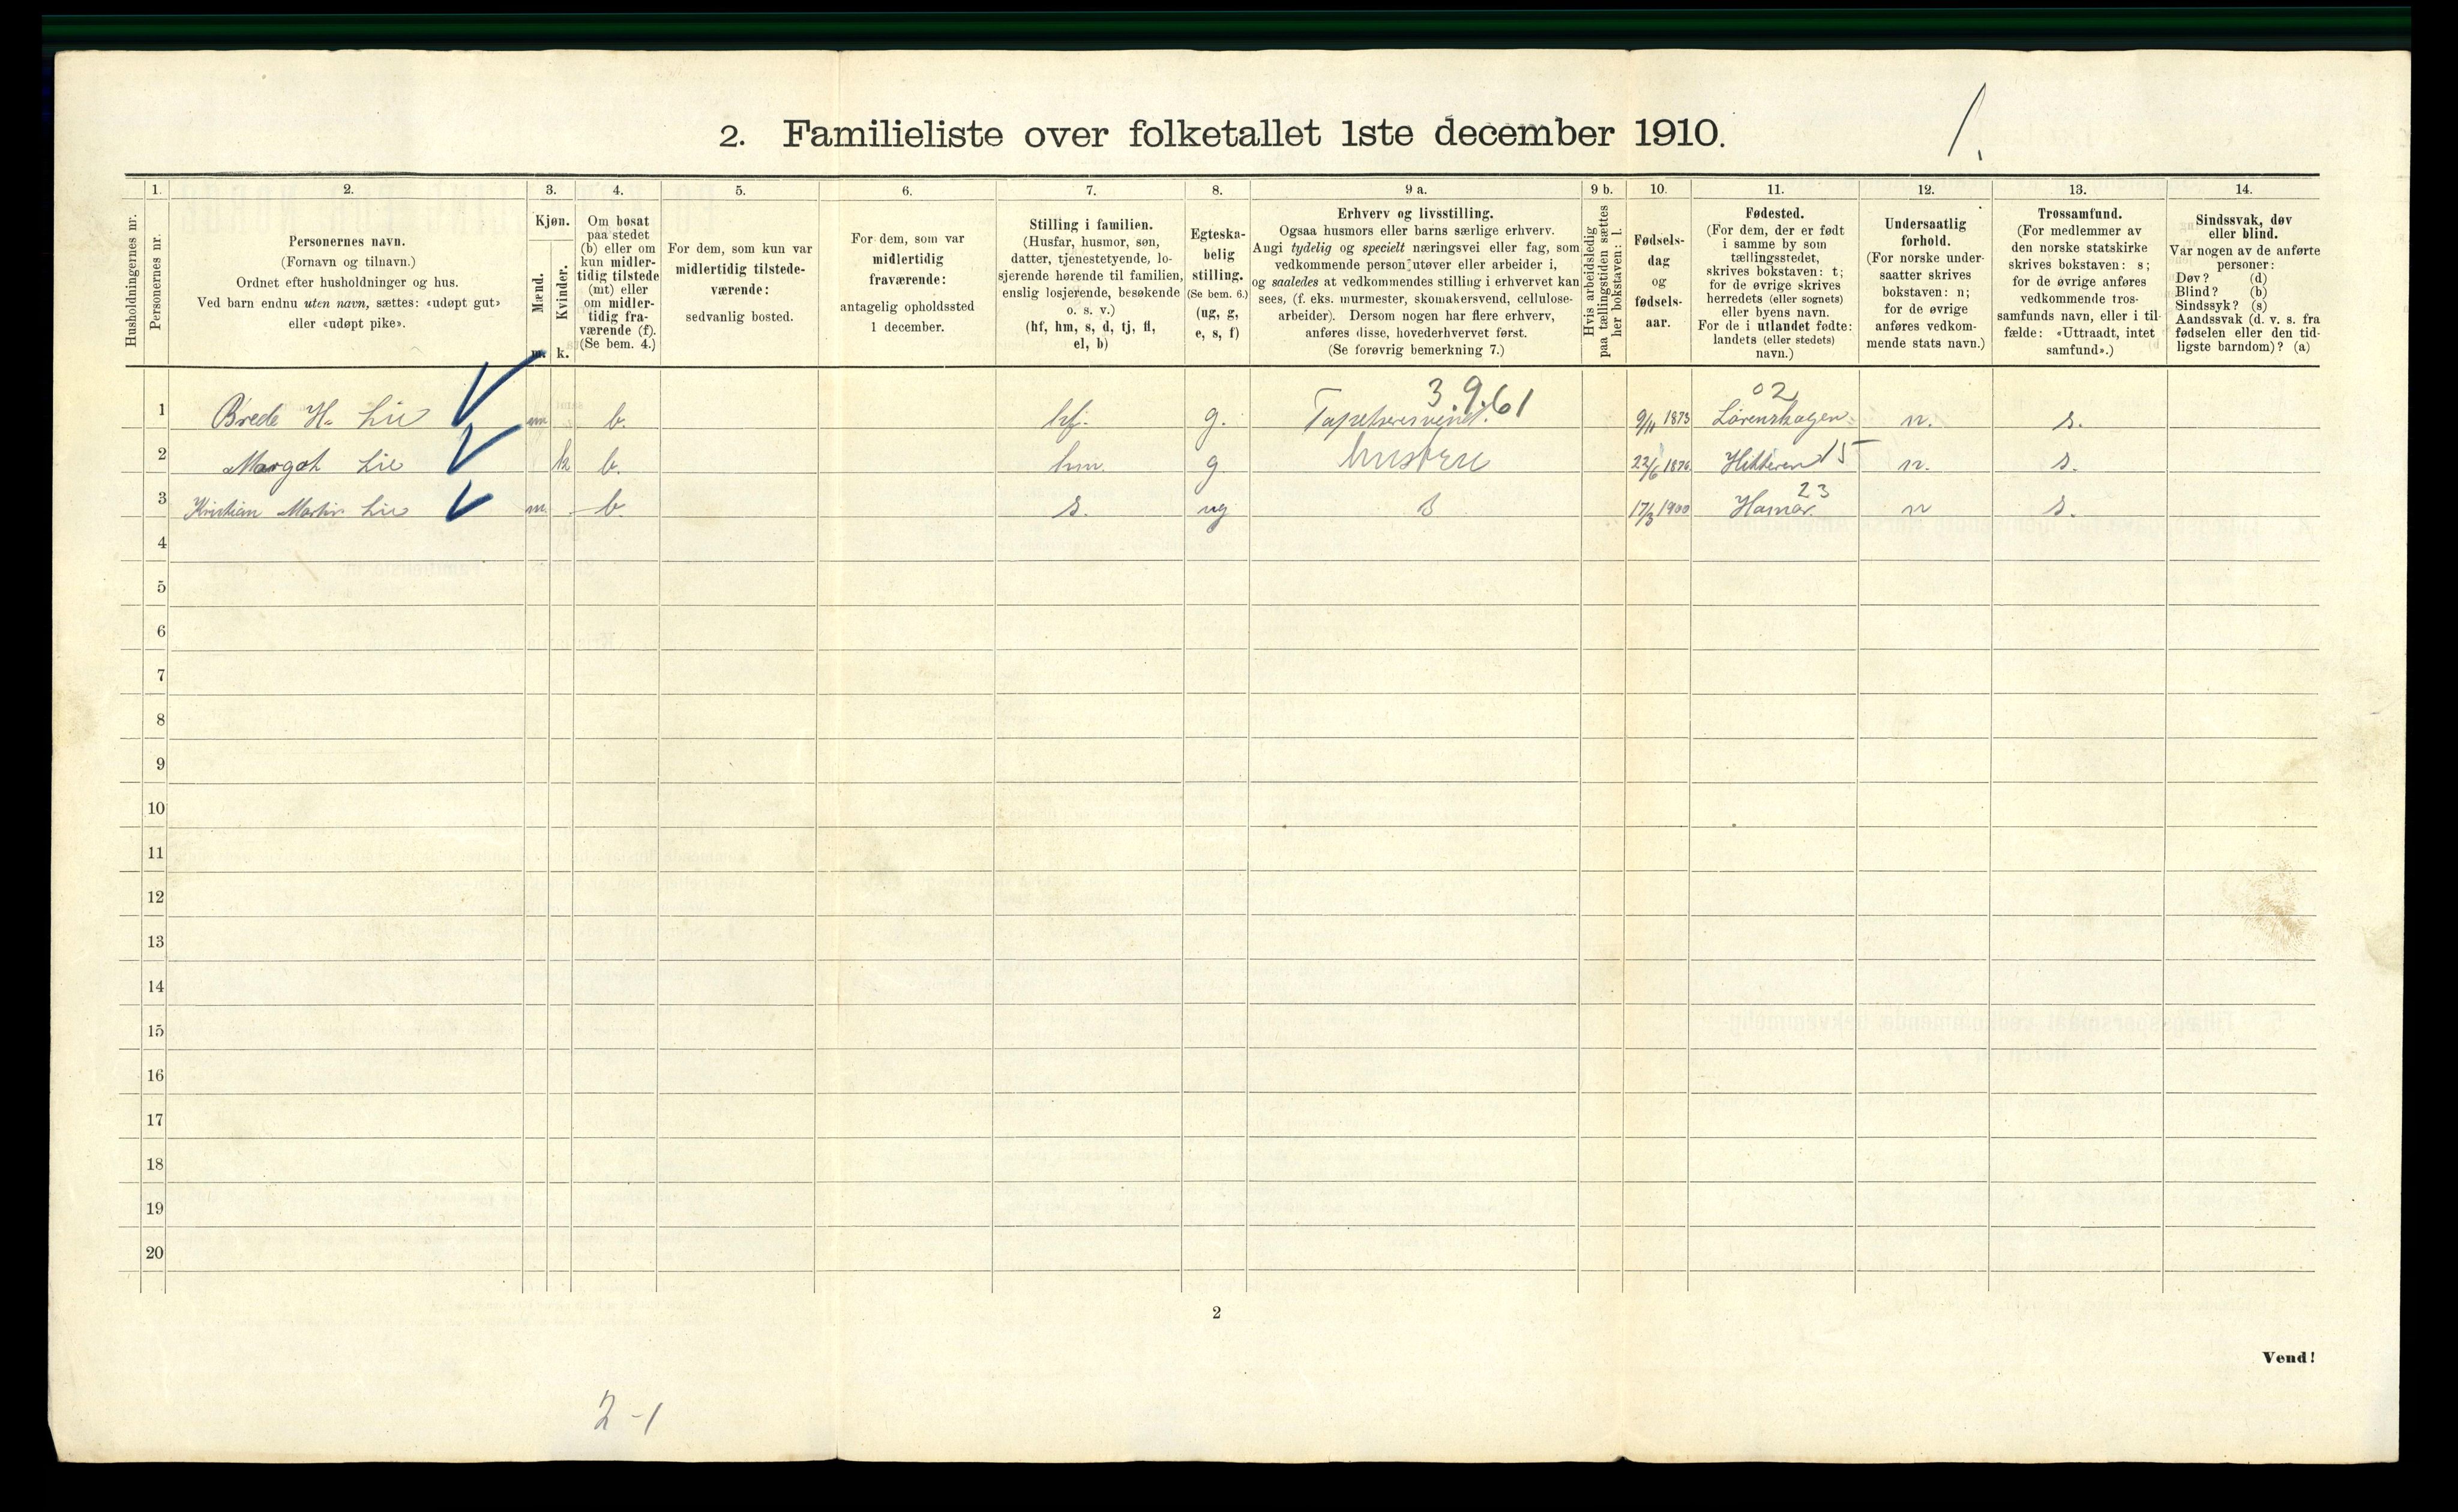 2. Familieliste over folketallet 1ste december 1910.
1.
Husholdningernes nr.
1.
Personernes nr.
2.
Personernes navn.
(Fornavn og tilnavn.)
Ordnet efter husholdninger og hus.
Ved barn endnu uten navn, sættes: «udøpt gut»
eller «udøpt pike».
3.
Kjøn.
Mænd.
Kvinder.
m.
k.
4.
Om bosat
paa stedet
(b) eller om
kun midler-
tidig tilstede
(mt) eller
om midler-
tidig fra-
værende (f).
(Se bem. 4.)
5.
For dem, som kun var
midlertidig tilstede-
værende:
sedvanlig bosted.
6.
For dem, som var
midlertidig
fraværende:
antagelig opholdssted
1 december.
7.
Stilling i familien.
(Husfar, husmor, søn,
datter, tjenestetyende, lo-
sjerende hørende til familien,
enslig losjerende, besøkende
o. s. v.)
(hf, hm, s, d, tj, fl,
el, b)
8.
Egteska-
belig
stilling.
(Se bem. 6.)
(ug, g,
e, s, f)
9 a.
Erhverv og livsstilling.
Ogsaa husmors eller barns særlige erhverv.
Angi tydelig og specielt næringsvei eller fag, som
vedkommende person utøver eller arbeider i,
og saaledes at vedkommendes stilling i erhvervet kan
sees, (f. eks. murmester, skomakersvend, cellulose-
arbeider). Dersom nogen har flere erhverv,
anføres disse, hovederhvervet først.
(Se forøvrig bemerkning 7.)
9 b.
Hvis arbeidsledig
paa tællingstiden sættes
her bokstaven: l.
10.
Fødsels-
dag
og
fødsels-
aar.
11.
Fødested.
(For dem, der er født
i samme by som
tællingsstedet,
skrives bokstaven: t;
for de øvrige skrives
herredets (eller sognets)
eller byens navn.
For de i utlandet fødte:
landets (eller stedets)
navn.)
12.
Undersaatlig
forhold.
(For norske under-
saatter skrives
bokstaven: n;
for de øvrige
anføres vedkom-
mende stats navn.)
13.
Trossamfund.
(For medlemmer av
den norske statskirke
skrives bokstaven: s;
for de øvrige anføres
vedkommende tros-
samfunds navn, eller i til-
fælde: «Uttraadt, intet
samfund».)
14.
Sindssvak, døv
eller blind.
Var nogen av de anførte
personer:
Døv? (d)
Blind? (b)
Sindssyk? (s)
Aandssvak (d. v. s. fra
fødselen eller den tid-
ligste barndom)? (a)
3.9.61 02
1 Brede H. Lie m. b. hf. g. Tapetserersvend. 9/11 1873 Lørenskagen n. s.
2 Margot Lie k b. hm. g. hustru 22/6 1876 Hitteren 15 n. s.
23
3 Kristian Martin Lie m. b. s. ug B 17/3 1900 Hamar. n s.
4
5
6
7
8
9
10
11
12
13
14
15
16
17
18
19
20
2
Vend!
2-1